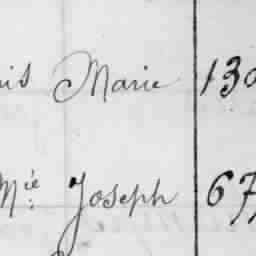 is Marie 130
Mie: Joseph 67